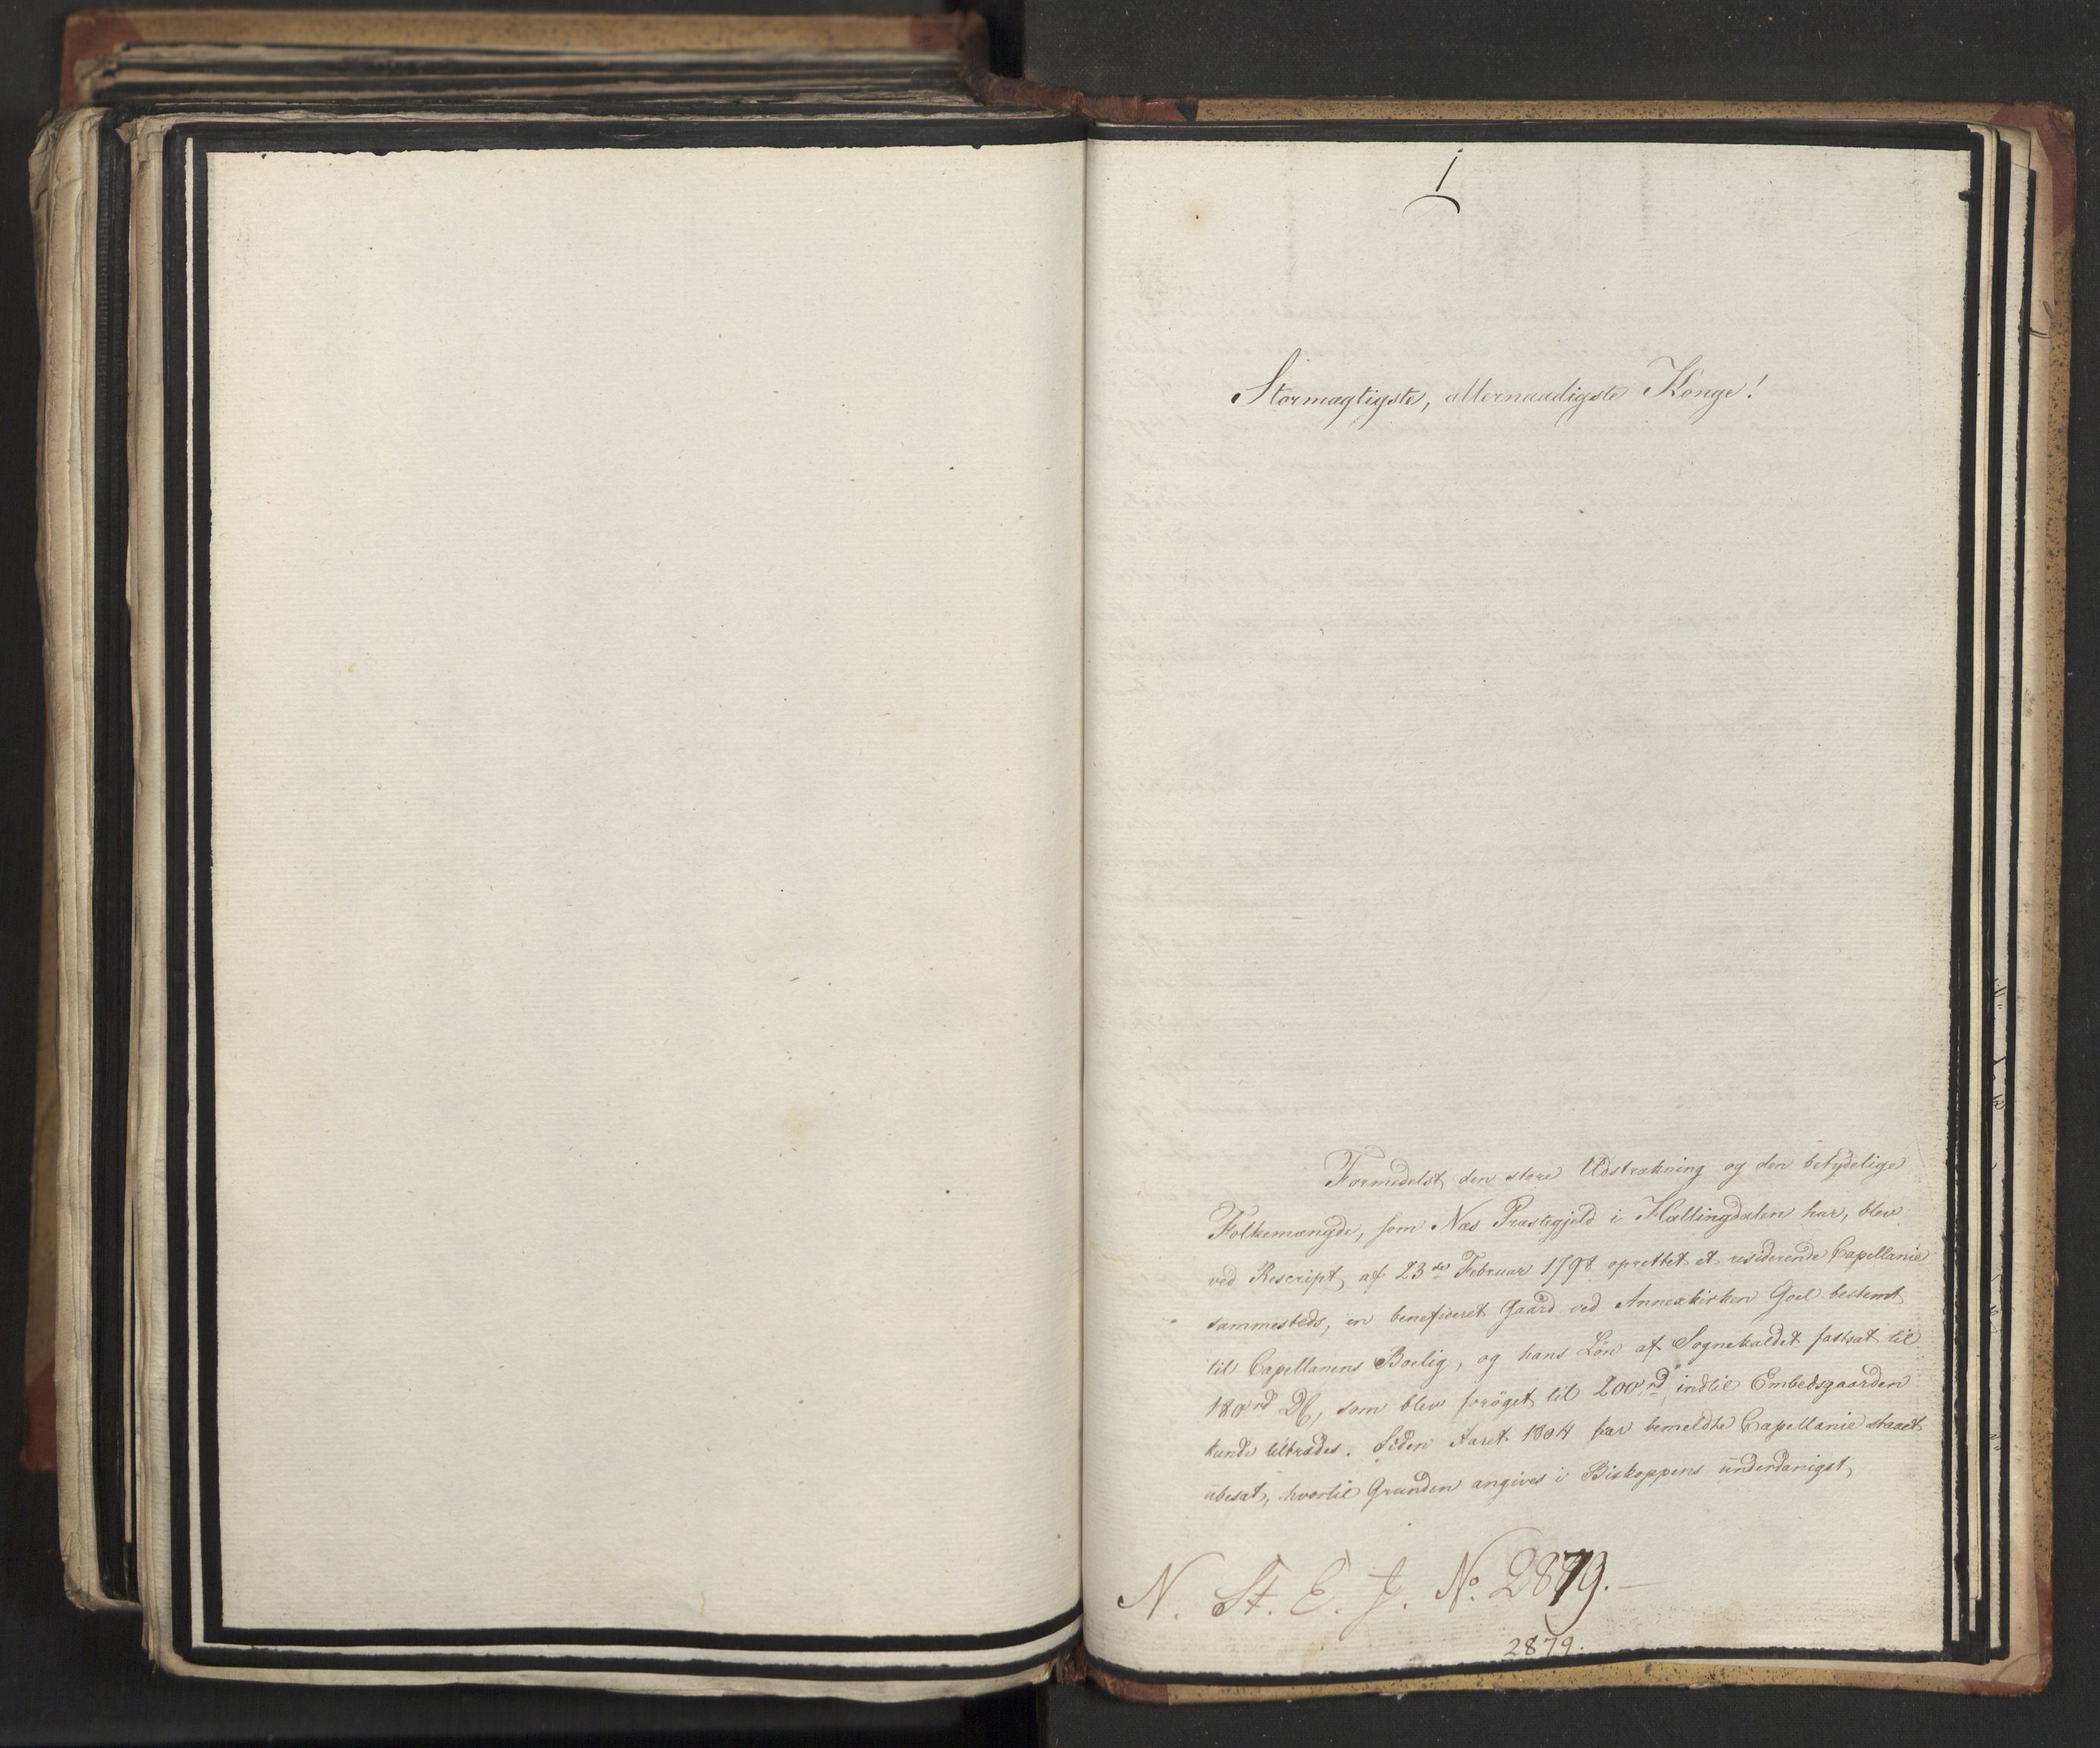 1
Stormægtigste, allernaadigste Konge!
Formedelst den store Udstrækning og den betydelige
Folkemængde, som Næs Præstegjeld i Hallingdalen har, blev
ved Rescript af 23de Februar 1798 oprettet et residerende Capellanie
sammesteds, en beneficeret Gaard ved Annexkirken Goel bestemt
til Capellanens Boelig, og hans Løn af Sognekaldet fastsat til
180rd DC, som blev forøget til 200rd, indtil Embedsgaarden
kunde tiltrædes. Siden Aaret 1804 har bemeldte Capellanie staaet
ubesat, hvortil Grunden angives i Biskoppens underdanigst
N. St. E. J. No. 2879.–
2879.